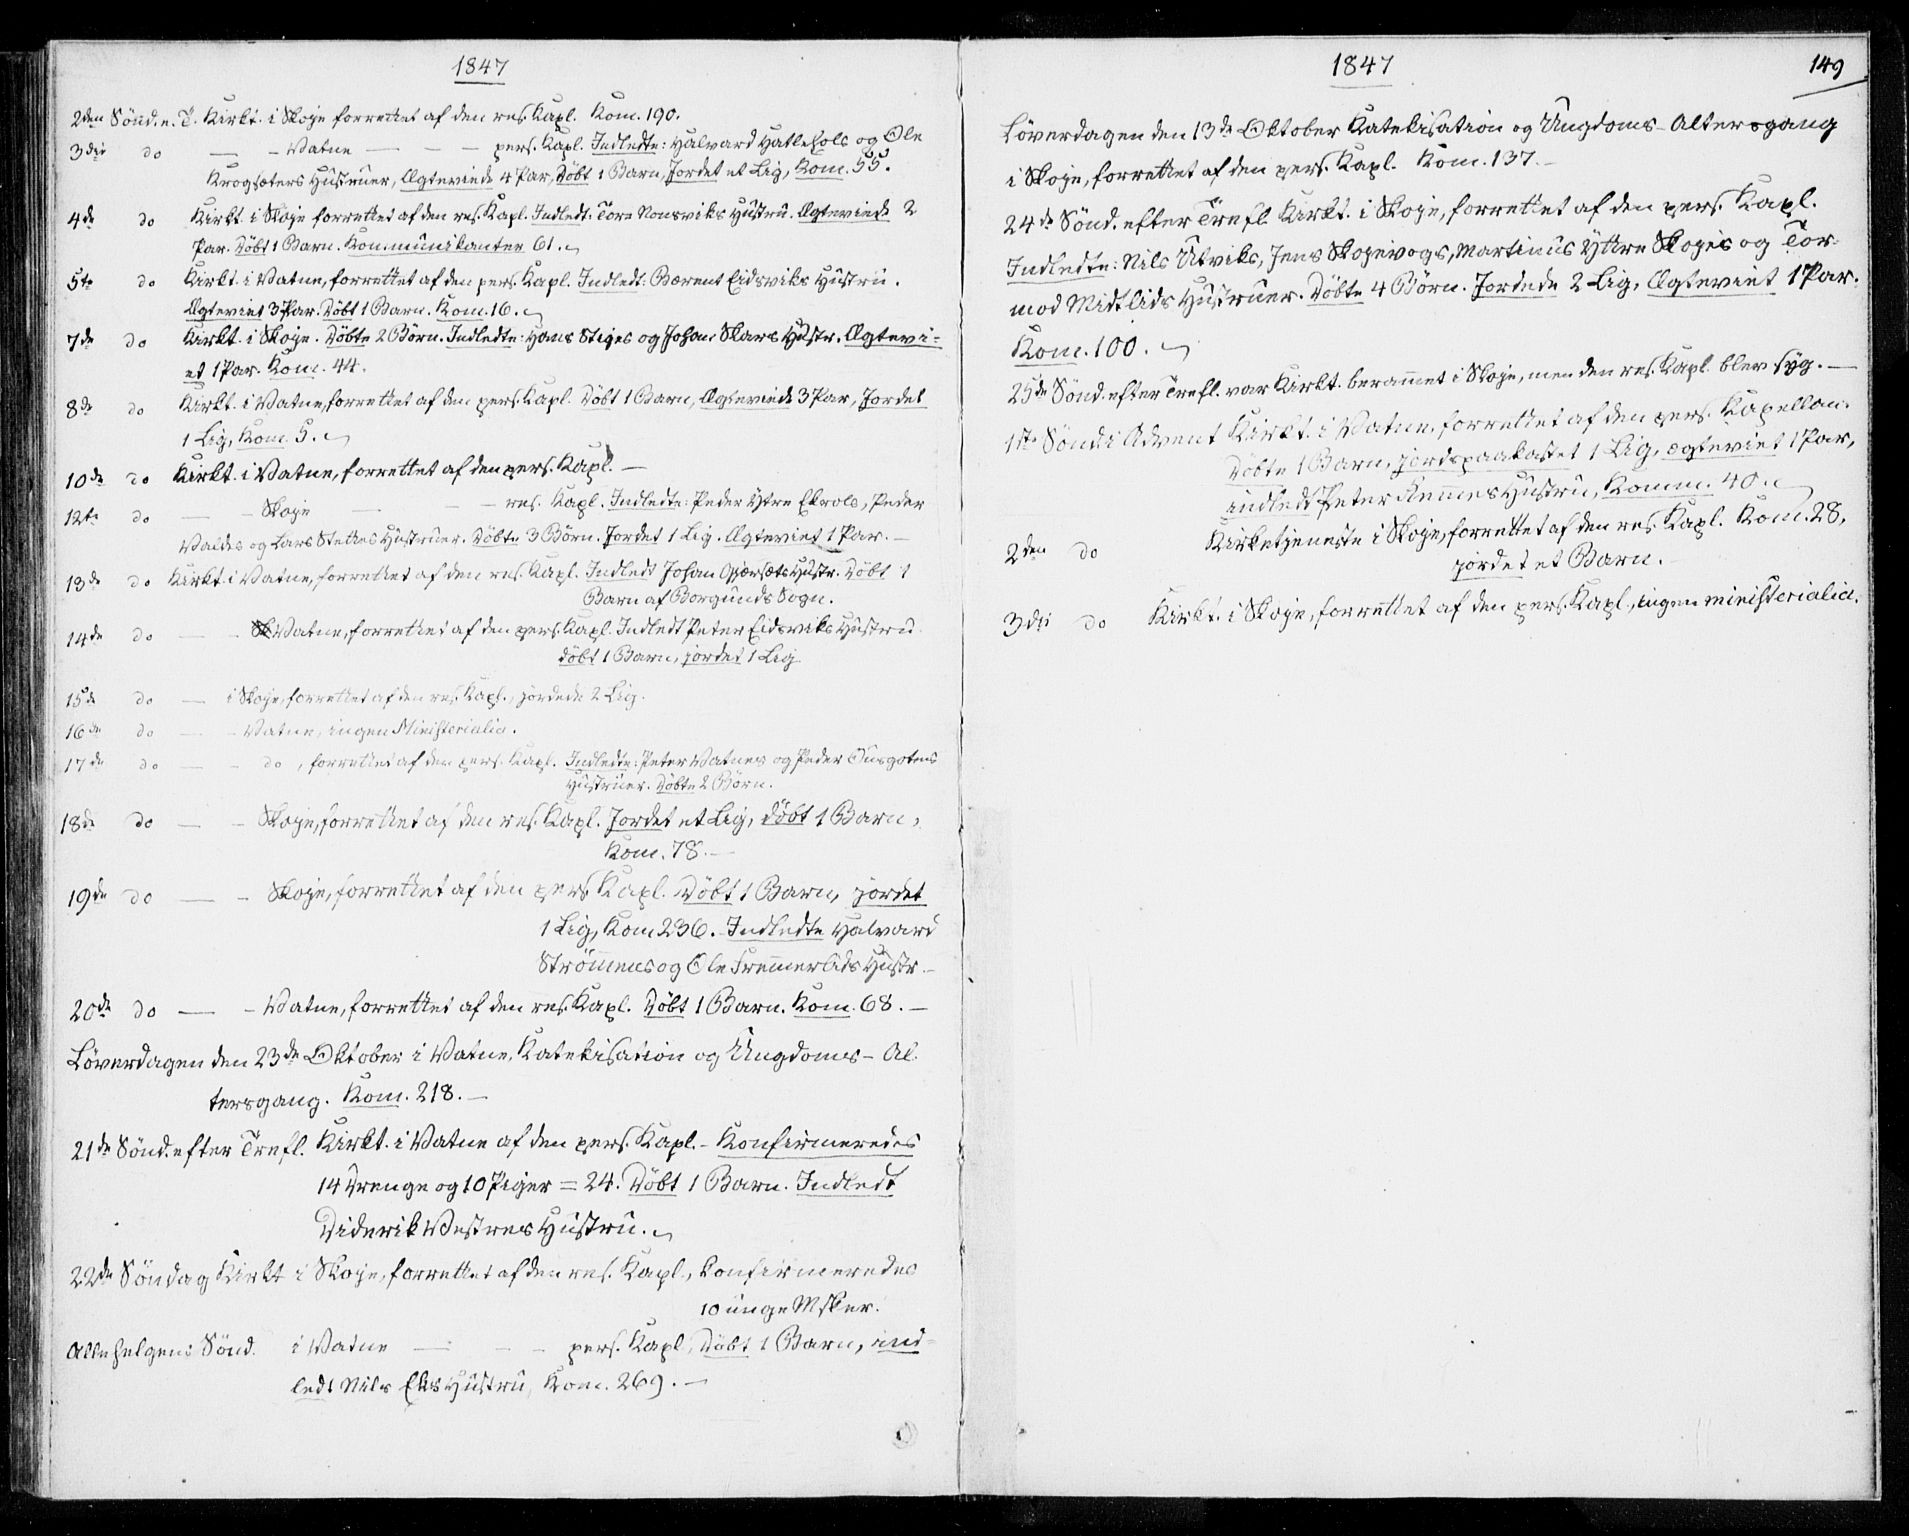 1847
2den Sönd. e. T. Kirkt. i Skoje forrettet af den res. Kapl. Kom. 190.
3die do — - Vatne — — — pers. Kapl. Indledte: Halvard Hatlehols og Ole
Krogsæters Hustruer, Ægteviede 4 Par, Döbt 1 Barn, Jordet et Lig, Kom. 55.
4de do Kirkt. i Skoje forrettet af den res. Kapl. Indledt. Tore Nonsviks Hustru. Ægteviede 2
Par. Döbt 1 Barn. Kommunikanter 61.
5te do Kirkt. i Vatne, forrettet af den pers. Kapl. Indledt: Berent Eidsviks Hustru.
Ægteviet 3 Par. Döbt 1 Barn. Kom. 16.
7de do Kirkt. i Skoje. Döbte 2 Börn. Indledte: Hans Stiges og Johan Skars Hustr. Ægtevi-
et 1 Par. Kom. 44.
8de do Kirkt. i Vatne, forrettet af den pers. Kapl. Döbt 1 Barn, Ægteviede 3 Par, Jordet
1 Lig, Kom. 5.
10de do Kirkt. i Vatne, forrettet af den pers. Kapl. —
12te do — - Skoje — res. Kapl. Indledte: Peder Ytre Ekrols, Peder
Valdes og Lars Stettes Hustruer. Döbte 3 Börn. Jordet 1 Lig. Ægteviet 1 Par. —
13de do Kirkt. i Vatne, forrettet af den res. Kapl. Indledt Johan Gjørsæts Hustr. Döbt 1
Barn af Borgunds Sogn.
14de do — - Vatne, forrettet af den pers. Kapl. Indledt Peter Eidsviks Hustru
döbt 1 Barn, jordet 1 Lig
15de do — i Skoje, forrettet af den res. Kapl., jordede 2 Lig.
16de do — - Vatne, ingen Ministerialia.
17de do — - do, forrettet af den pers. Kapl. Indledte: Peter Vatnes og Peder
Hustruer. Döbte 2 Börn.
18de do — - Skoje, forrettet af den res. Kapl. Jordet et Lig, döbt 1 Barn,
Kom. 78. —
19de do — - Skoje, forrettet af den pers. Kapl. Döbt 1 Barn, jordet
1 Lig, Kom 236. Indledte Halvard
Strömmes og Ole Fremmerlids Hustr. —
20de do — - Vatne, forrettet af den res. Kapl. Döbt 1 Barn. Kom. 68. —
Löverdagen den 23de Oktober i Vatne, Katekisation og Ungdoms-Al-
tersgang. Kom. 218. —
21de Sönd. efter Trefl. Kirkt. i Vatne af den pers. Kapl. - Konfirmeredes
14 Drenge og 10 Piger = 24. Döbt 1 Barn. Indledt
Diderik Vestres Hustru.
22de Söndag Kirkt i Skoje, forrettet af den res. Kapl., konfirmeredes
10 unge Msker.
Allehelgens Sönd. i Vatne — - - pers. Kapl, Döbt 1 Barn, ind-
ledt Nils Eks Hustru, Kom. 269. —
1847
149
Löverdagen den 13de Oktober Katekisation og Ungdoms-Altersgang
i Skoje, forrettet af den pers. Kapl. Kom. 137. —
24de Sönd. efter Trefl. Kirkt. i Skoje, forrettet af den pers. Kapl.
Indledte: Nils Utviks, Jens Skojevogs, Martinus Yttre Skojes og Tor-
mod Midtlids Hustruer. Döbte 4 Börn. Jordede 2 Lig, Ægteviet 1 Par.
Kom. 100.
25de Sönd. efter Trefl. var Kirkt. berammet i Skoje, men den res. Kapl. blev syg. —
1ste Sönd. i Advent Kirkt. i Vatne, forrettet af den pers. Kapellan.
Döbte 1 Barn, jordspaakastet 1 Lig, ægteviet 1 Par,
indledt Peter Hustru, Komm. 40.
2den do Kirketjeneste i Skoje, forrettet af den res. Kapl. Kom. 28,
jordet et Barn.
3die do Kirkt. i Skoje, forrettet af den pers. Kapl., ingen ministerialia.